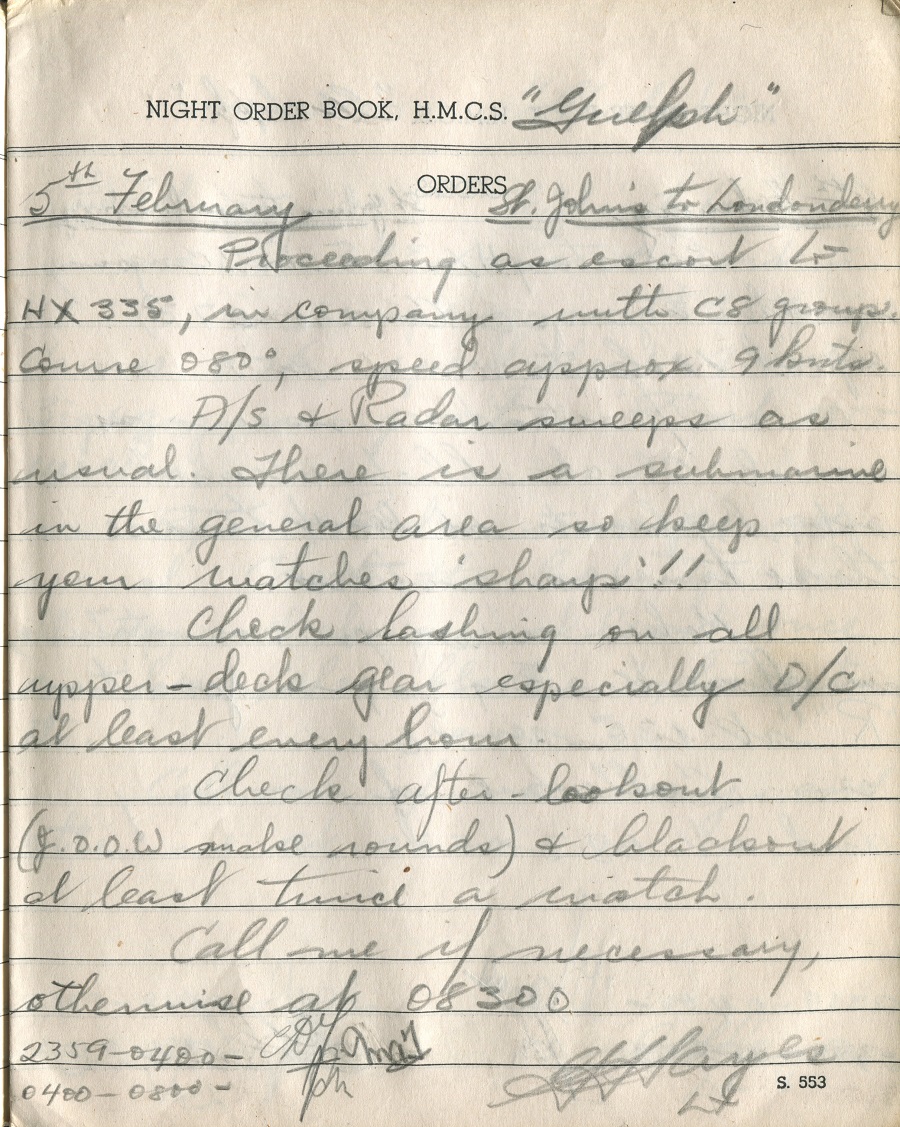 NIGHT ORDER BOOK, H.M.C.S. "Guelph"
ORDERS
5th February St. John's to Londonderry
Proceeding as escort to
HX 335, in company with C8 group.
Course 080°, speed approx 9 knts.
A/S & Radar sweeps as
usual. There is a submarine
in the general area so keep
your watches 'sharp'!!
Check lashing on all
upper-deck gear especially D/C
at least every hour.
Check after-lookout
(J.O.O.W make rounds) & blackout
at least twice a watch.
Call me if necessary,
otherwise at 08300
2359-0400-
0400-0800- Hayes
Lt
S. 553